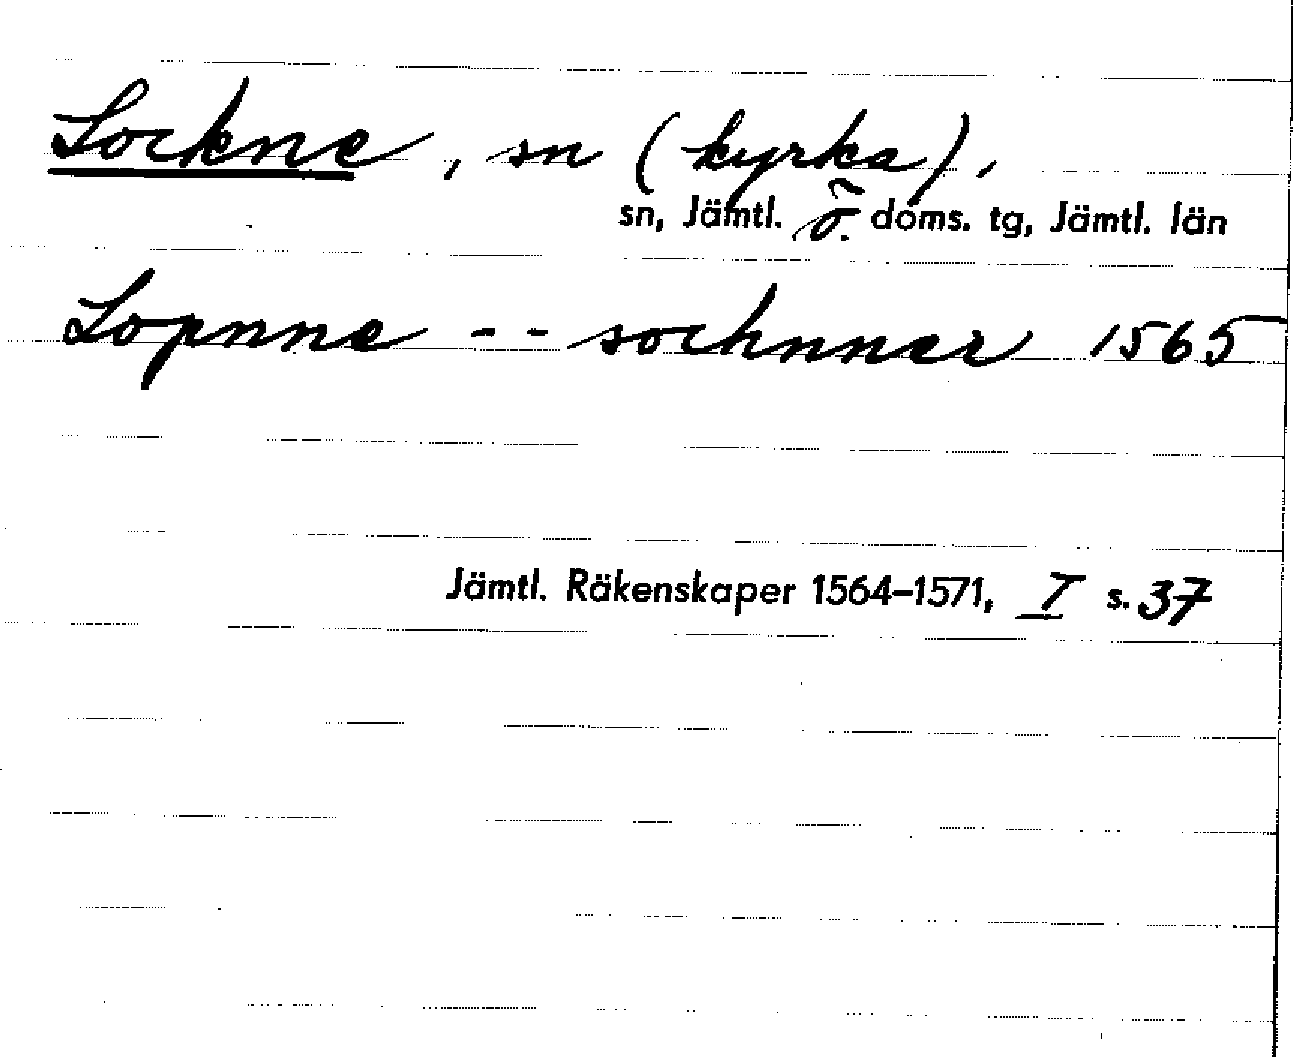 Lockne, sn (kyrka),
sn, Jämtl. ö. doms. tg, Jämtl. län
Lopnne -- sochnner 1565
Jämtl. Räkenskaper 1564–1571, I s. 37